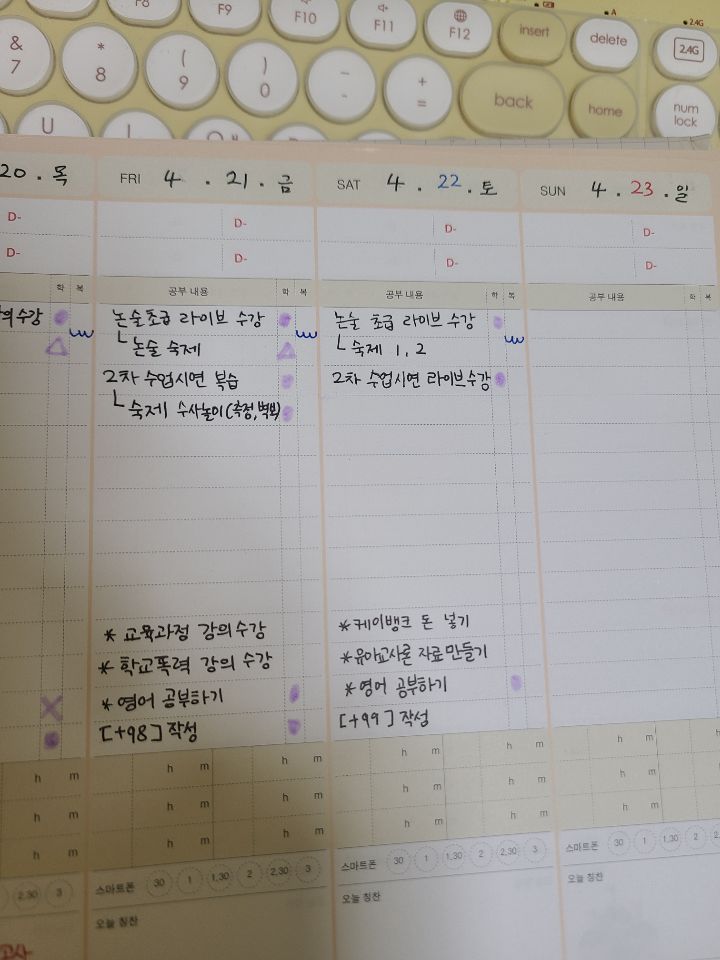 F8 F9 F10 F11 F12 insert delete 2.4G
2.4G
& 7 * 8 ( 9 ) 0 - + = back home num lock
U
20 . 목
FRI 4 . 21 . 금
SAT 4 . 22 . 토
SUN 4 . 23 . 일
D-
D-
D-
D-
D-
D-
D-
D-
학 복
공부 내용 학 복
공부 내용 학 복
공부 내용 학 복
의 수강
논술초급 라이브 수강
ㄴ논술 숙제
2차 수업시연 복습
ㄴ숙제 수사놀이(측정,벽보)
* 교육과정 강의수강
* 학교폭력 강의 수강
* 영어 공부하기
[+98] 작성
논술 초급 라이브 수강
ㄴ숙제 1, 2
2차 수업시연 라이브수강
* 케이뱅크 돈 넣기
* 유아교사론 자료 만들기
* 영어 공부하기
[+99] 작성
h m h m h m h m h m h m h m
h m h m h m h m h m h m h m
h m h m h m h m h m h m h m
2,30 3
스마트폰 30 1 1,30 2 2,30 3
스마트폰 30 1 1,30 2 2,30 3
스마트폰 30 1 1,30 2 2,
오늘 칭찬
오늘 칭찬
오늘 칭찬
고사